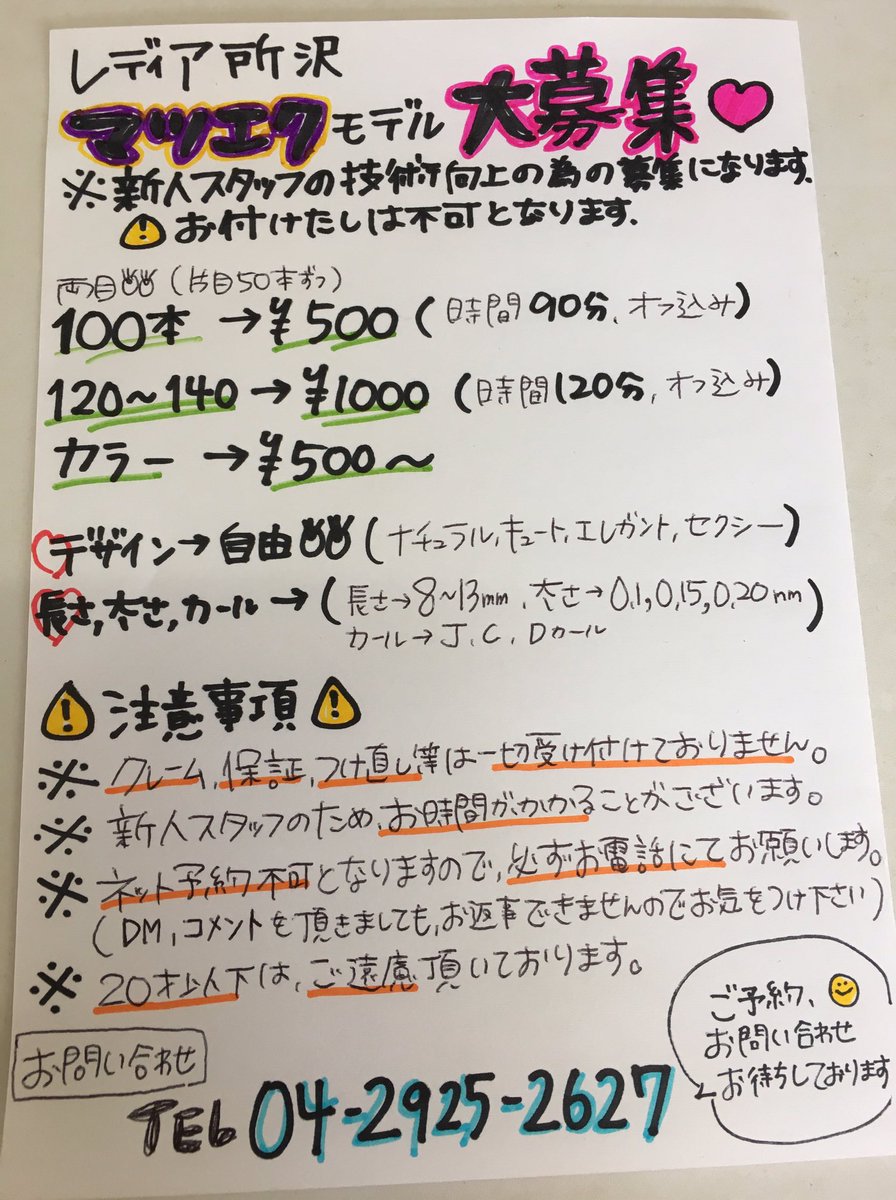 レディア所沢
マツエクモデル 大募集
※新人スタッフの技術向上の為の募集になります.
お付けたしは不可となります.
両目(片目50本ずつ)
100本 → ¥500 (時間90分、オフ込み)
120〜140 → ¥1000 (時間120分,オフ込み)
カラー → ¥500〜
デザイン→自由 (ナチュラル,キュート,エレガント,セクシー)
長さ,太さ,カール → (長さ→8〜13mm、太さ→0,1,0,15,0,20mm)
カール→J、C、Dカール
注意事項
※ クレーム,保証,つけ直し等は一切受け付けておりません。
※ 新人スタッフのため,お時間がかかることがございます。
※ ネット予約不可となりますので,必ずお電話にてお願いします。
(DM,コメントを頂きましても,お返事できませんのでお気をつけ下さい)
※ 20才以下は,ご遠慮頂いております。
ご予約、
お問い合わせ
お待ちしております
お問い合わせ
TEL 04-2925-2627